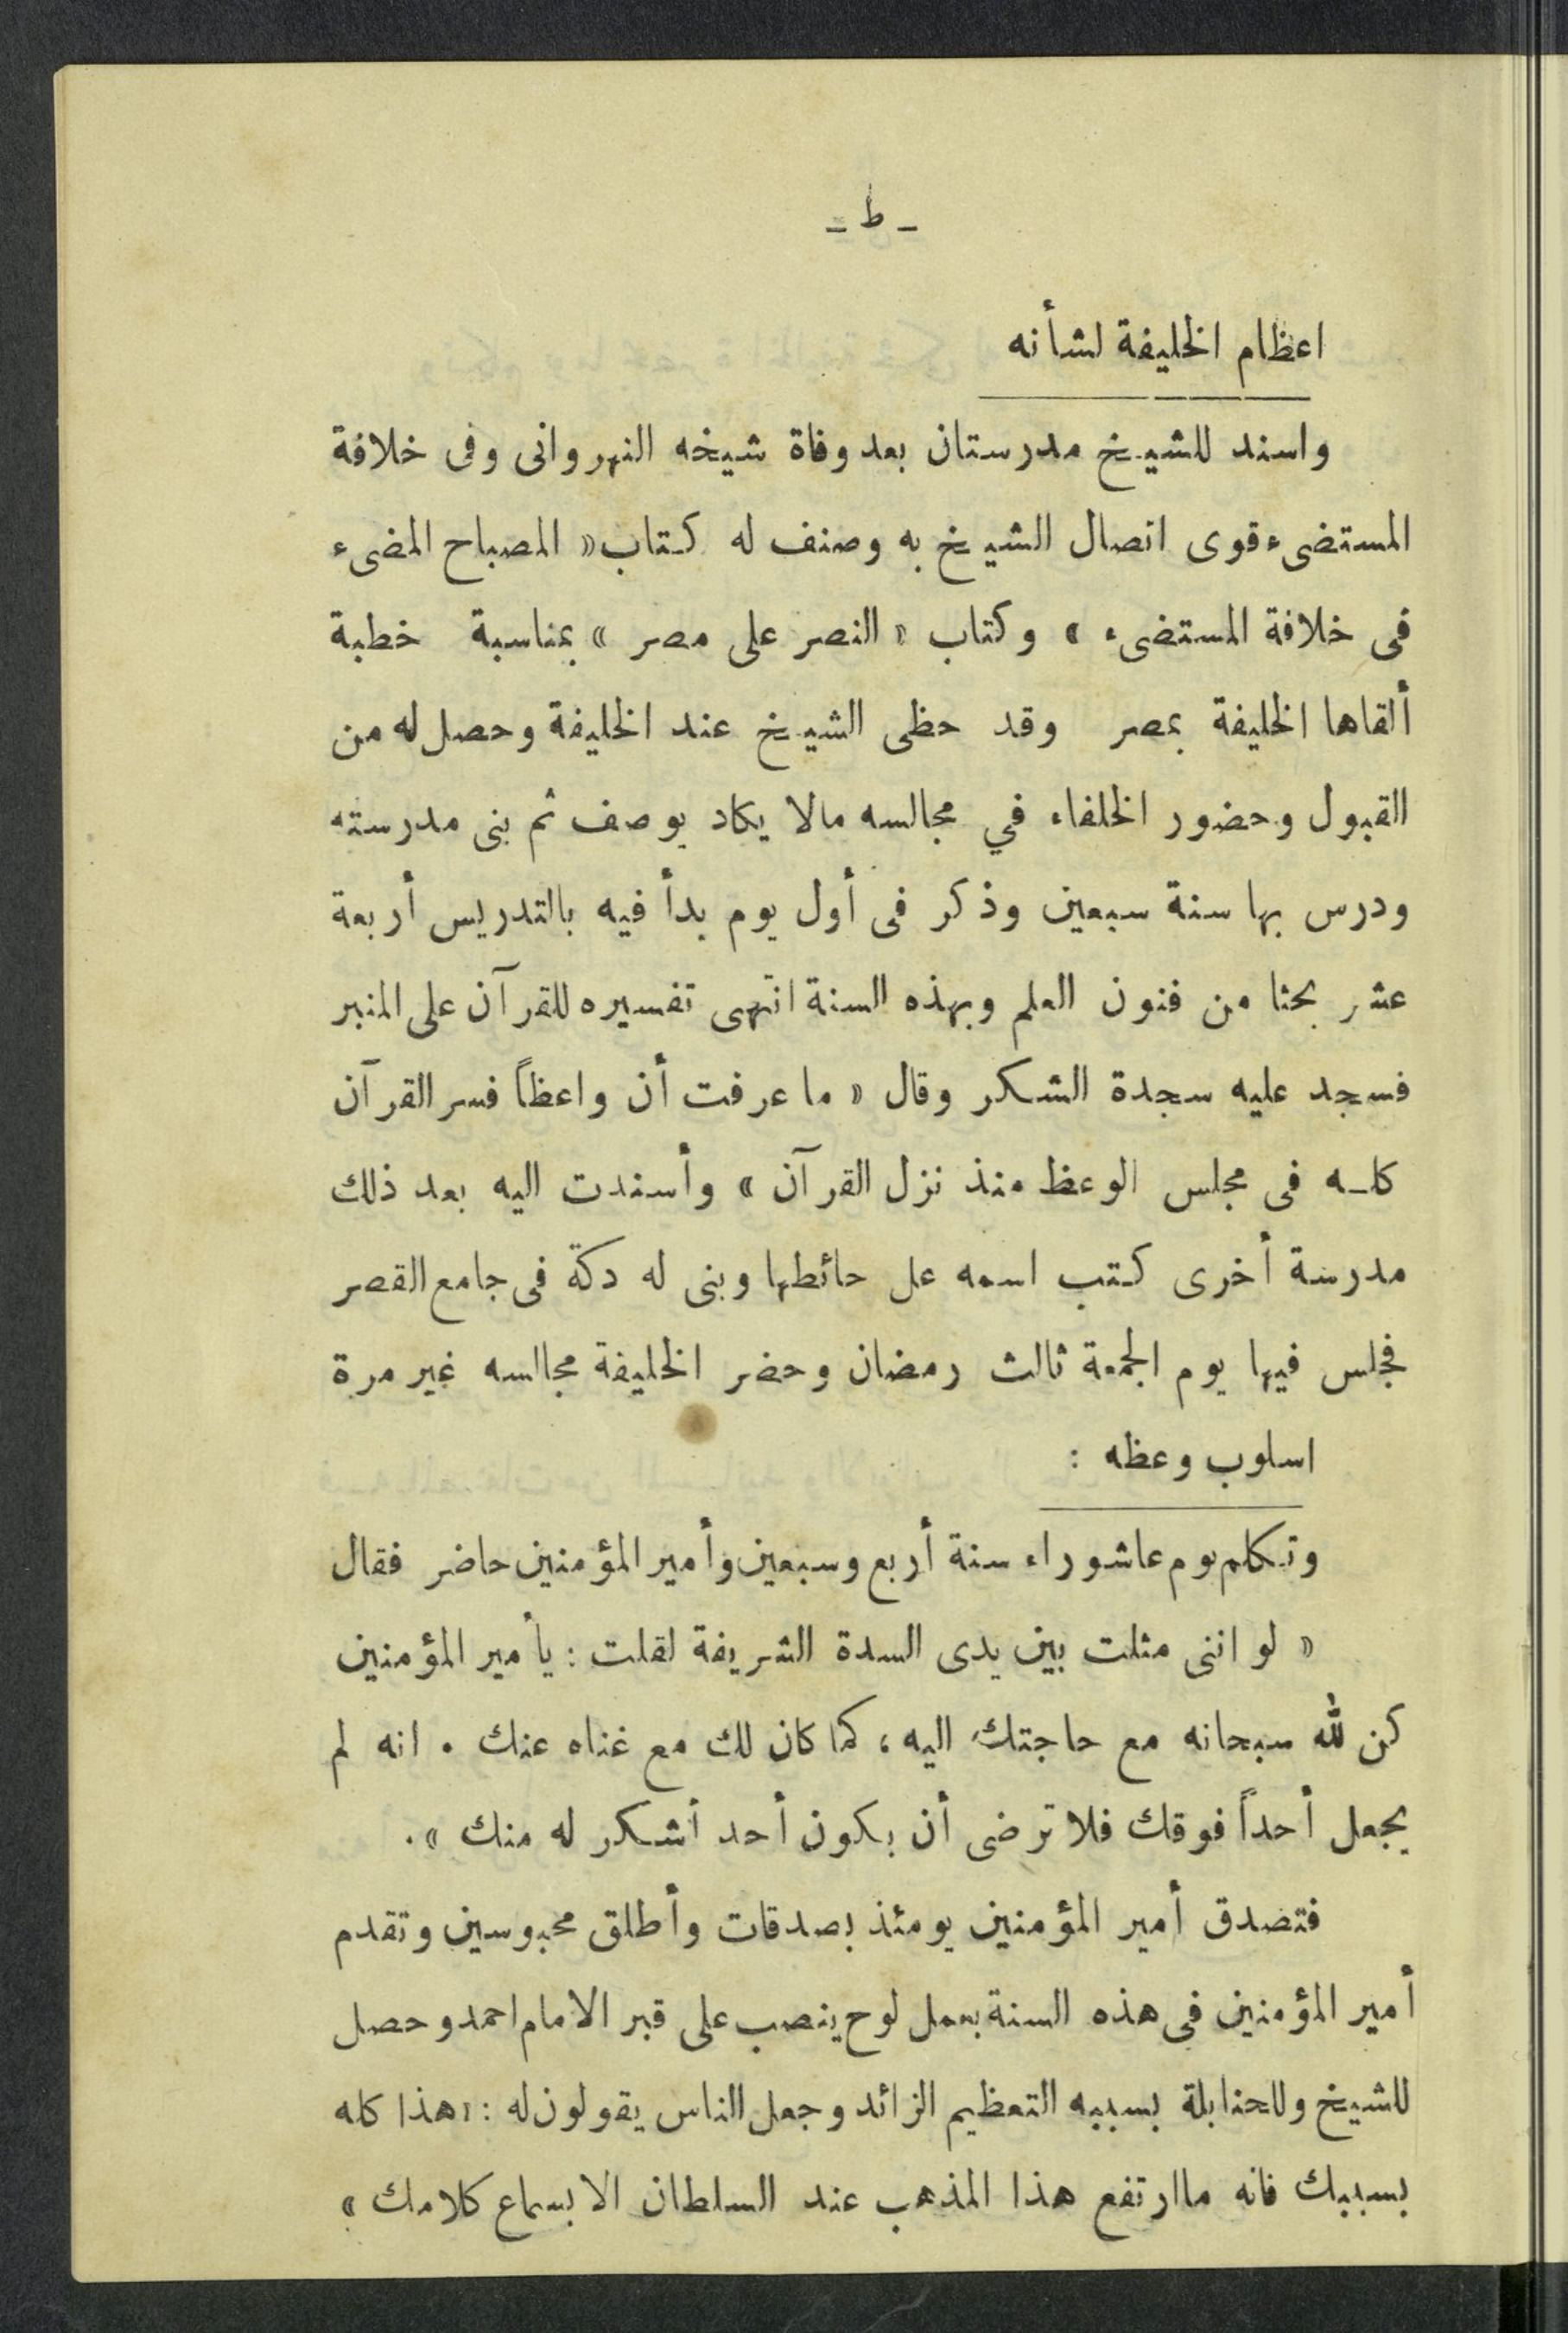 ـ ط ـ
اعظام الخليفة لشأنه
واسند للشيخ مدرستان بعد وفاة شيخه النهروانى وفى خلافة
المستضىء قوى اتصال الشيخ به وصنف له كتاب « المصباح المضىء
فى خلافة المستضىء » وكتاب « النصر على مصر » بمناسبة خطبة
ألقاها الخليفة بمصر وقد حظى الشيخ عند الخليفة وحصل له من
القبول وحضور الخلفاء في مجالسه مالا يكاد يوصف ثم بنى مدرسته
ودرس بها سنة سبعين وذكر فى أول يوم بدأ فيه بالتدريس أربعة
عشر بحثا من فنون العلم وبهذه السنة انتهى تفسيره للقرآن على المنبر
فسجد عليه سجدة الشكر وقال « ما عرفت أن واعظاً فسر القرآن
كله فى مجلس الوعظ منذ نزل القرآن » وأسندت اليه بعد ذلك
مدرسة أخرى كتب اسمه على حائطها وبنى له دكة فى جامع القصر
فجلس فيها يوم الجمعة ثالث رمضان وحضر الخليفة مجالسه غير مرة
اسلوب وعظه :
وتكلم يوم عاشوراء سنة أربع وسبعين وأمير المؤمنين حاضر فقال
« لو اننى مثلت بين يدى السدة الشريفة لقلت : يا أمير المؤمنين
كن لله سبحانه مع حاجتك اليه ، كما كان لك مع غناه عنك . انه لم
يجعل أحداً فوقك فلا ترضى أن يكون أحد أشكر له منك » .
فتصدق أمير المؤمنين يومئذ بصدقات وأطلق محبوسين وتقدم
أمير المؤمنين فى هذه السنة بعمل لوح ينصب على قبر الامام احمد وحصل
للشيخ وللحنابلة بسببه التعظيم الزائد وجعل الناس يقولون له : « هذا كله
بسببك فانه ماارتفع هذا المذهب عند السلطان الا بسماع كلامك »